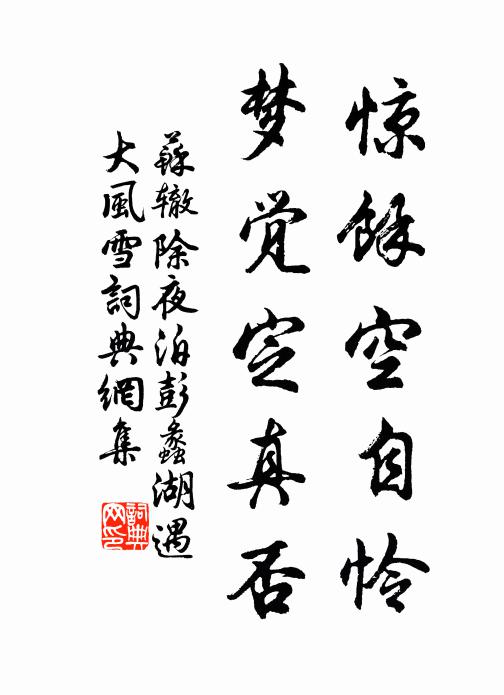 惊馀空自怜
梦觉定真否
蘇辙除夜泊彭蠡湖遇
大風雪詞典網集
詞典
网印